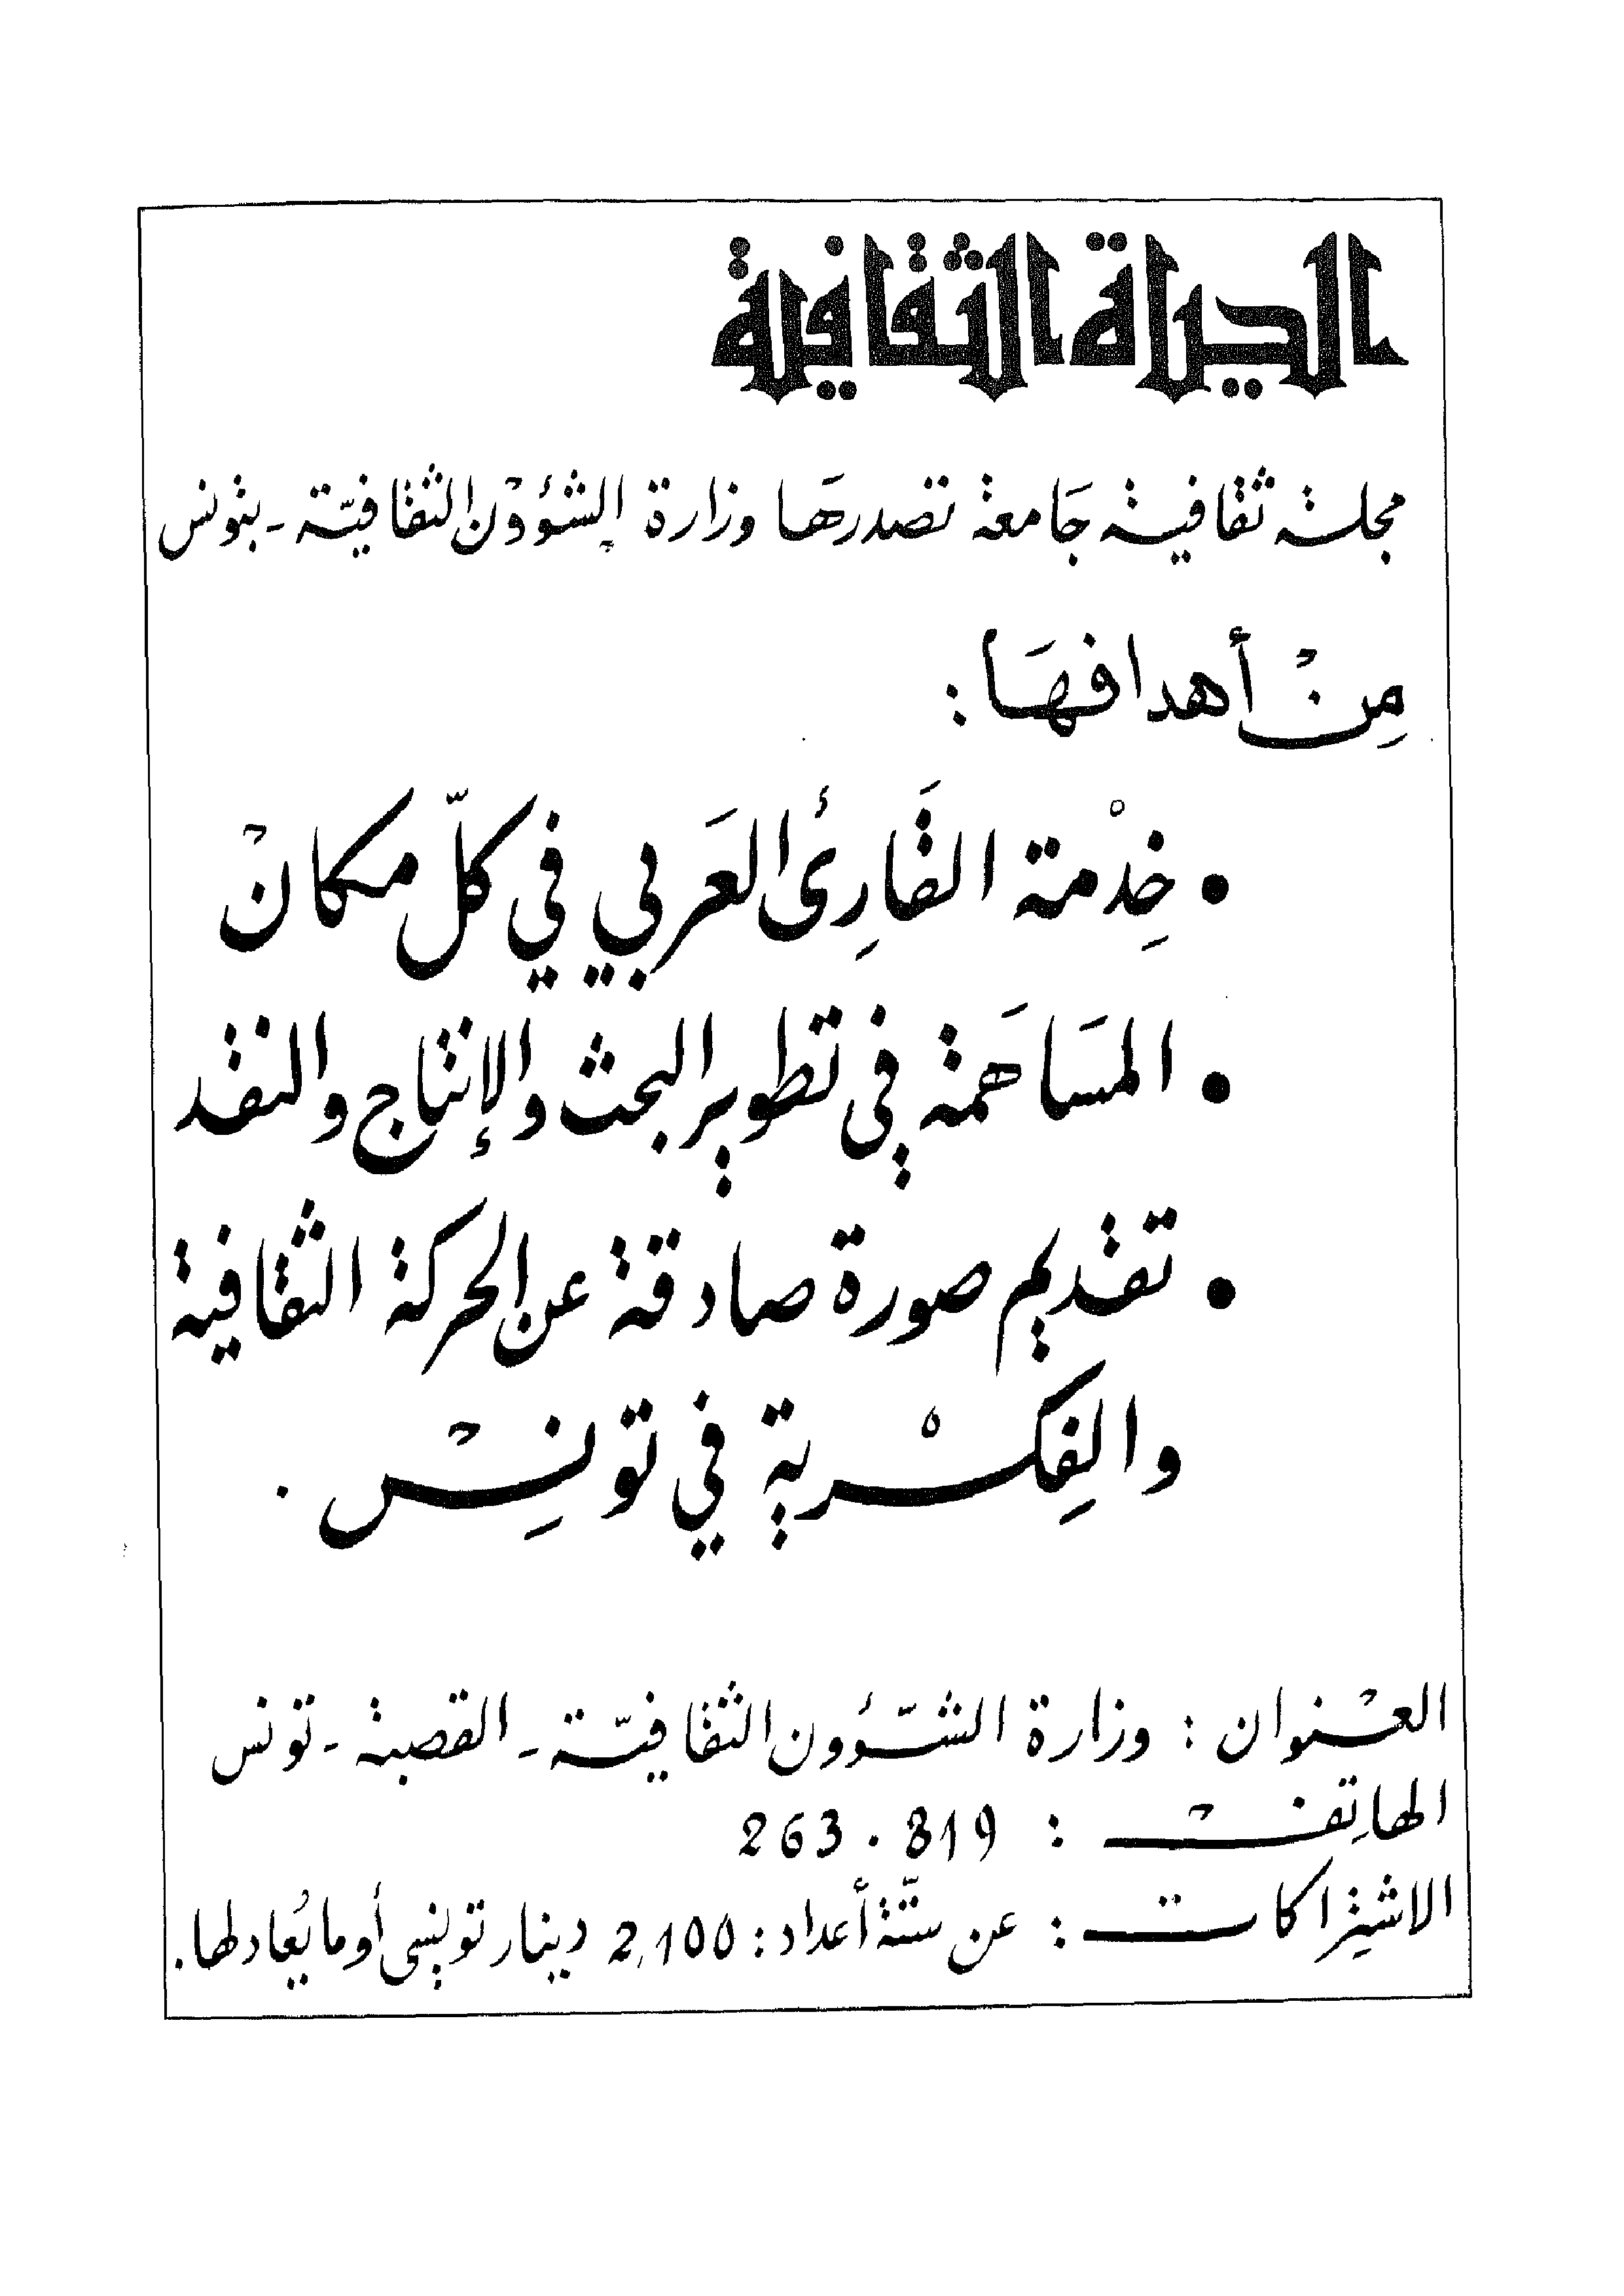 الحياة الثقافية
مجلة ثقافية جَامعة تصدرهَا وزارة الشؤوْن الثقافيّة - بتونس
مِنْ أهدافهَا :
• خِدْمة القَارِئ العَربي في كلّ مكانْ
• المسَاهَمة في تطوير البحث والإنتاج والنقد
• تقديم صورة صادقة عن الحركة الثقافية
والفِكْرية في تونِسْ .
العنْوان : وزارة الشّؤون الثقافيّة - القصبة - تونس
الهاتِفْ : 263.819
الاشتِراكات : عن ستّة أعداد : 2,100 دينار تونسي أو ما يُعادلها .